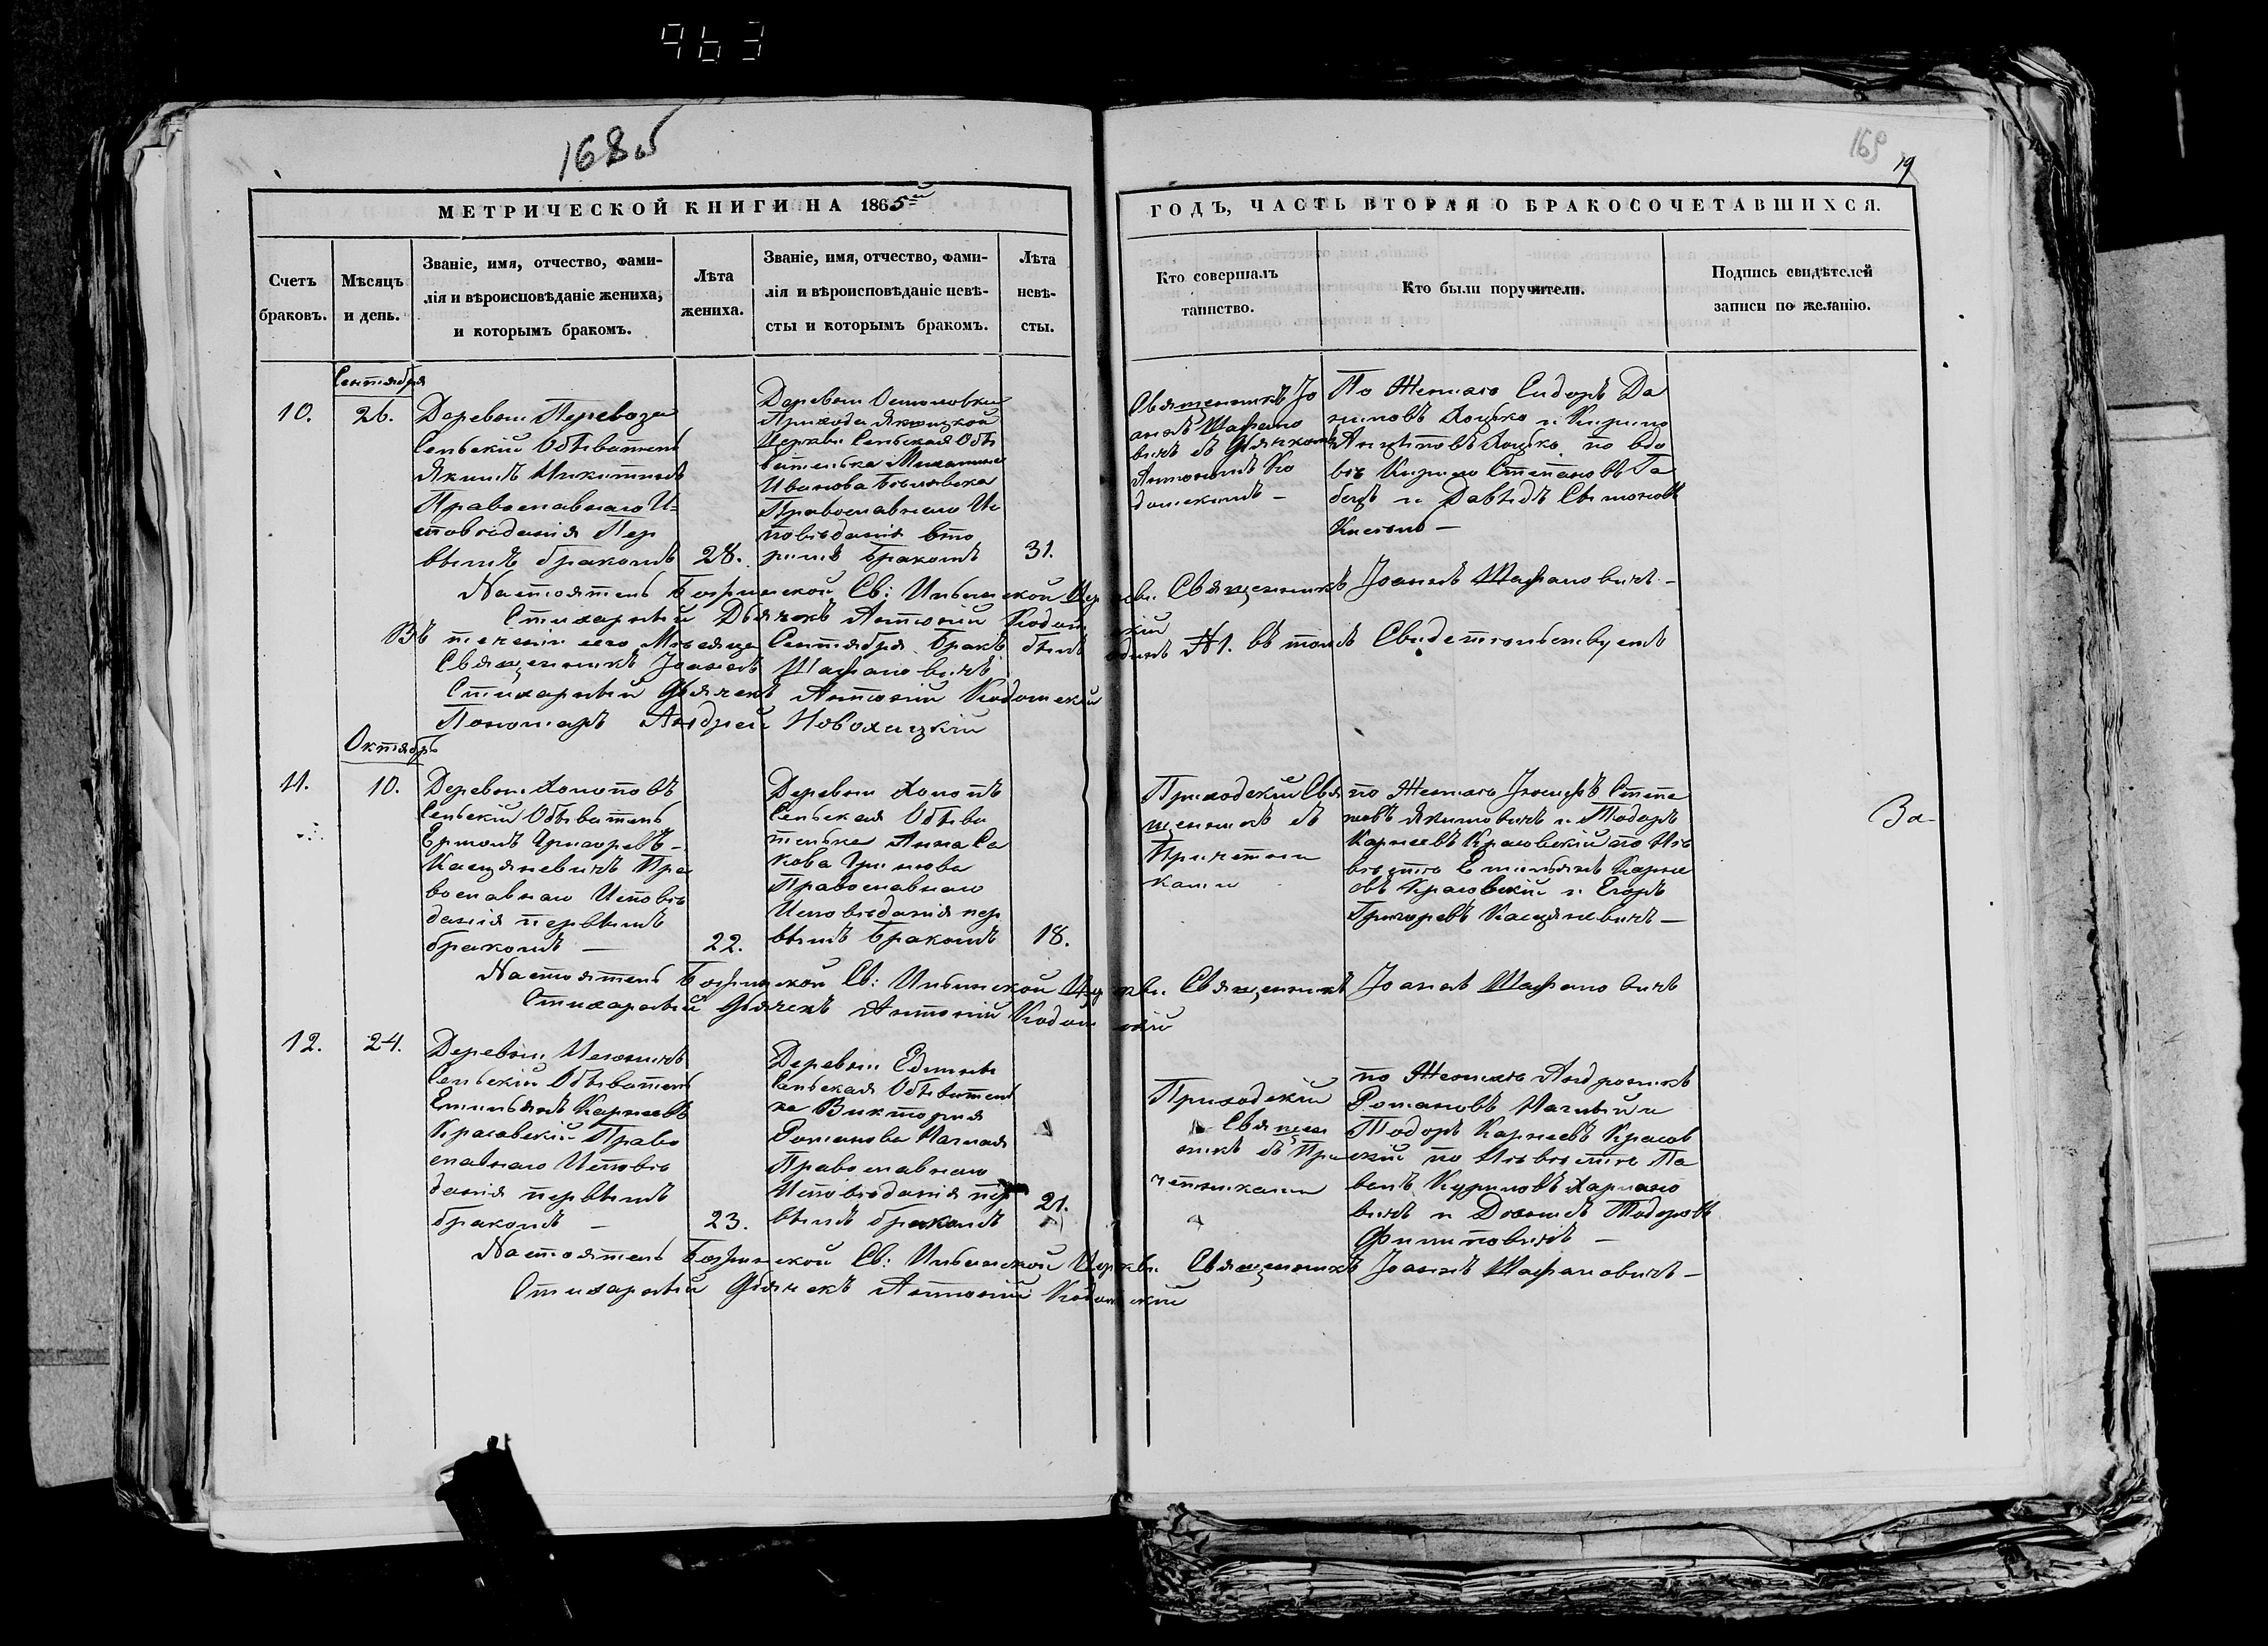 963
168 об
169
19
МЕТРИЧЕСКОЙ КНИГИ НА 1865й
ГОДЪ, ЧАСТЬ ВТОРАЯ О БРАКОСОЧЕТАВШИХСЯ.
Счетъ браковъ.
Мѣсяцъ и день.
Званіе, имя, отчество, фами-
лія и вѣроисповѣданіе жениха,
и которымъ бракомъ.
Лѣта
жениха.
Званіе, имя, отчество, фами-
лія и вѣроисповѣданіе невѣ-
сты и которымъ бракомъ.
Лѣта
невѣ-
сты.
Кто совершалъ
таинство.
Кто были поручители.
Подпись свидѣтелей
записи по желанію.
Сентября
10.
26.
Деревни Перевоза
Сельскій Обыватель
Якимъ Никитинъ
Православнаго И=
сповѣданія Пер
вымъ бракомъ
28.
Деревни
Прихода
Церкви Сельская Обы
вателька
Иванова
Православнаго Ис
повѣданія вто
рымъ бракомъ
31.
Священникъ Іо
аннъ Шафано
вичъ съ Дьячкомъ
Антоніемъ Ко
домскимъ —
По Женихѣ Сидоръ Да
ниловъ Хоцько и Кирило
Хоцько, по
Кирило Степановъ Га
и Давыдъ
Настоятель Св: Ильинской Церкви Священникъ Іоаннъ Шафановичъ —
Стихарный Дьячекъ Антоній Кодомскій
Въ теченіи сего Мѣсяца Сентября Бракъ былъ одинъ №1. въ томъ Свидетельствуетъ
Священникъ Іоаннъ Шафановичъ
Стихарный Дьячекъ Антоній Кодомскій
Пономарь Андрей Новохацкій
Октябрь
11.
10.
Деревни Холоповъ
Сельскій Обыватель
Ермолъ Григорьевъ
Касцяневичъ Пра
вославнаго Исповѣ
данія первымъ
бракомъ —
22.
Деревни
Сельская Обыва
телька Анна Са
кова
Православнаго
Исповѣданія пер
вымъ бракомъ
18.
Приходскій Свя
щенникъ съ
Причетни
ками
по Женихѣ Іосифъ Степа
новъ Якимовичъ и Тодоръ
Карнеевъ Красовскій по Не
вѣстѣ Емильянъ Карне
евъ Красовскій и Егоръ
Григорьевъ Касцяневичъ —
За-
Настоятель Св: Ильинской Церкви Священникъ Іоаннъ Шафановичъ
Стихарный Дьячекъ Антоній Кодомскій
12.
24.
Деревни
Сельскій Обыватель
Емильянъ Карнеевъ
Красовскій Право
славнаго Исповѣ
данія первымъ
бракомъ —
23.
Деревни
Сельская Обыватель
ка Викторія
Романова
Православнаго
Исповѣданія пер
вымъ бракомъ
21.
Приходскій
Священ
никъ съ При
четниками
по Женихѣ Андроникъ
Романовъ и
Тодоръ Карнеевъ Красов
скій по Невѣстѣ Па
велъ
и Тодоровъ
Филиповичъ —
Настоятель Св: Ильинской Церкви Священникъ Іоаннъ Шафановичъ —
Стихарный Дьячекъ Антоній Кодомскій